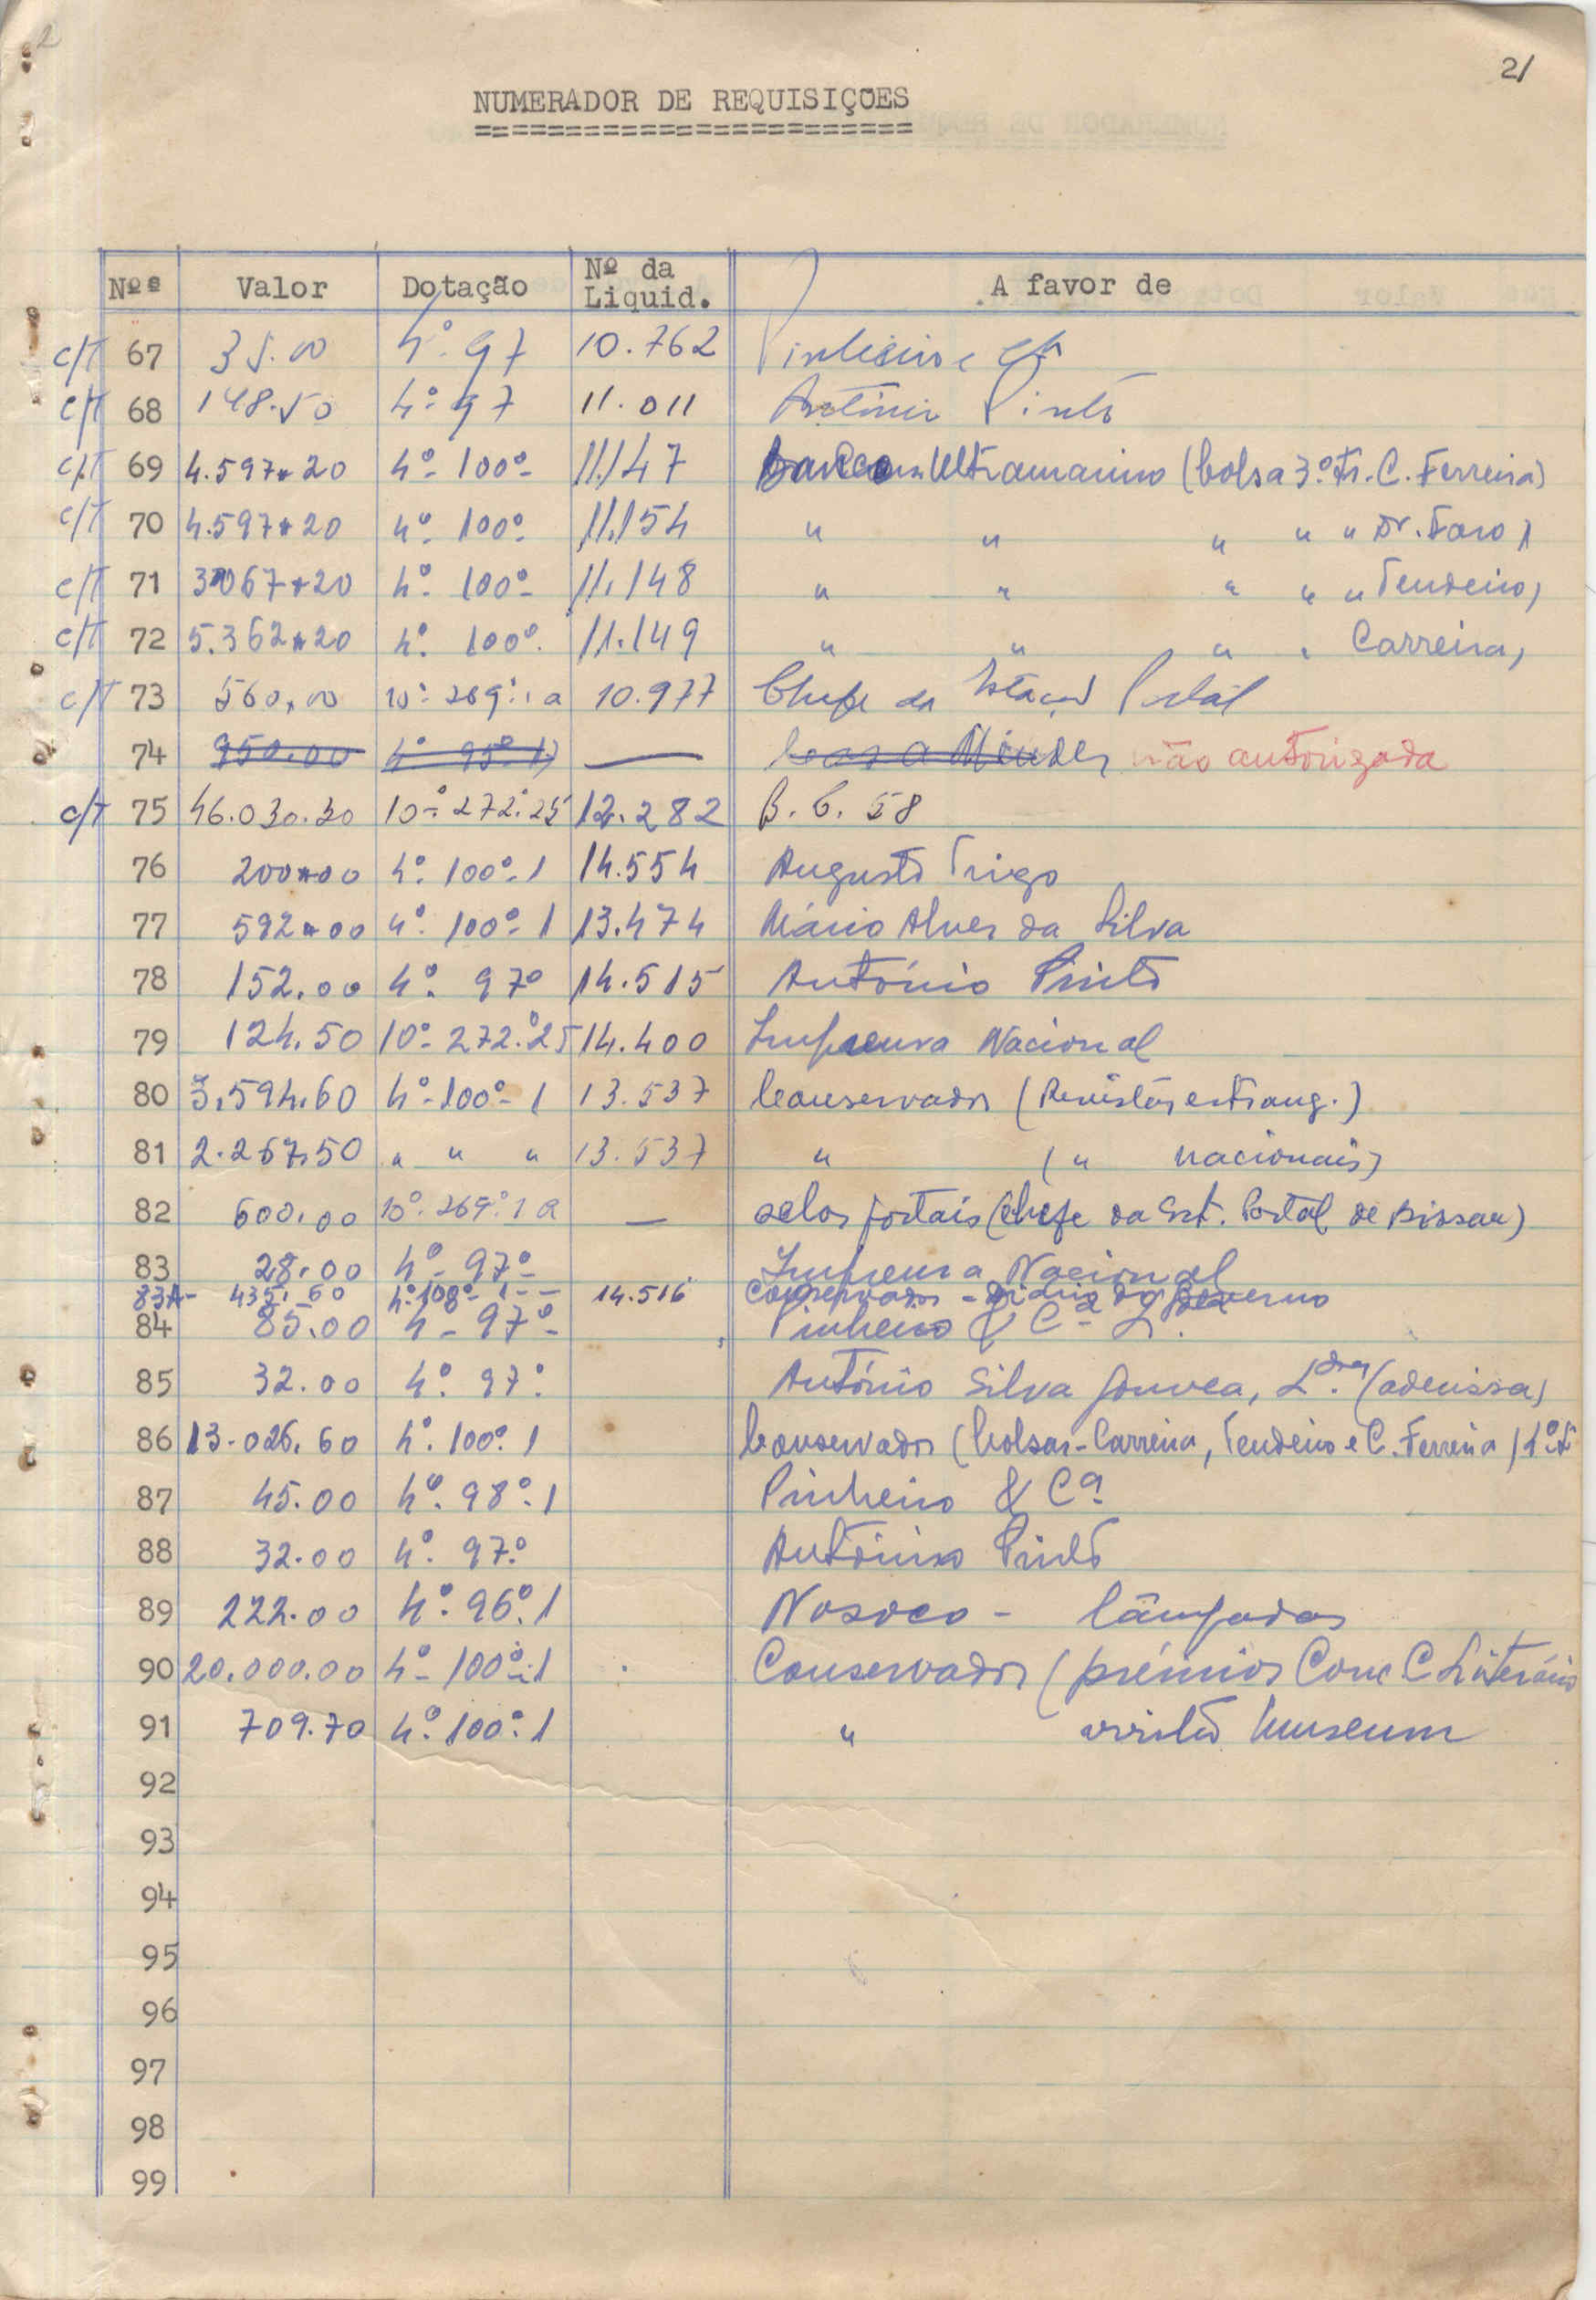 2
21
NUMERADOR DE REQUISIÇÕES
========================
Nºs Valor Dotação Nº da Liquid. A favor de
c/T 67 35.00 4º. 97 10.762 Pinheiro e Cª
c/T 68 148.50 4º. 97 11.011 António Pinto
c/T 69 4.597*20 4º- 100º- 11.147 Banco Ultramarino (bolsa 3º. Tr. C. Ferreira)
c/T 70 4.597*20 4º- 100º- 11.154 " " " " " Dr. Faro)
c/T 71 3.067*20 4º- 100º- 11.148 " " " " " Tendeiro)
c/T 72 5.362*20 4º. 100º. 11.149 " " " " Carreira)
c/T 73 560,00 10º. 269º. 1 a 10.977 Chefe da Estação Postal
74 950.00 4º 95º 1) — Casa Mendes não autorizada
c/T 75 46.030.30 10-º 272.º 25 12.282 B. C. 58
76 200*00 4º. 100º.1 14.554 Augusto Trigo
77 592*00 4º. 100º. 1 13.474 Mário Alves da Silva
78 152.00 4º. 97º 14.515 António Pinto
79 124.50 10º- 272.º25 14.400 Imprensa Nacional
80 3.594.60 4º-100º- 1 13.537 Conservador (Revistas estrang.)
81 2.267.50 " " " 13.537 " ( " nacionais)
82 600.00 10º. 269.º 1 a — selos postais (Chefe da Est. Postal de Bissau)
83 28.00 4º- 97º- Imprensa Nacional
83A- 435.60 4º.100º- 1 -- 14.516 Conservador - Diário do Governo
84 85.00 4º- 97º- Pinheiro & Cª Lª.
85 32.00 4º. 97º. António Silva Gouvea, L.da (adenissa)
86 13.026.60 4º. 100º. 1 Conservador (bolsas-Carreira, Tendeiro e C. Ferreira) 1º.T
87 45.00 4º. 98º.1 Pinheiro & Cª.
88 32.00 4º. 97.º António Pinto
89 222.00 4º. 96º.1 Nosoco - lâmpadas
90 20.000.00 4º- 100º.1 Conservador (prémios Conc C Literário
91 709.70 4º. 100º.1 " Museum
92
93
94
95
96
97
98
99